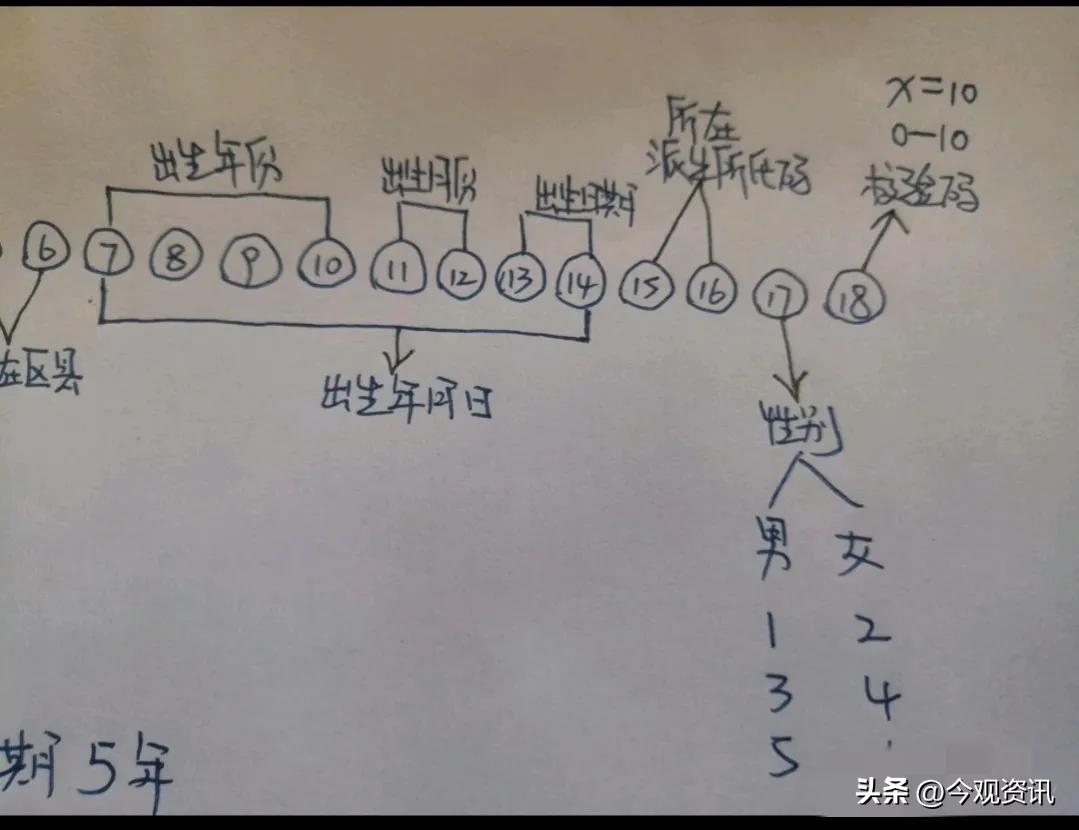 x=10
0—10
校验码
所在
派出所代码
出生年份
出生月份
出生日期
⑥ ⑦ ⑧ ⑨ ⑩ ⑪ ⑫ ⑬ ⑭ ⑮ ⑯ ⑰ ⑱
在区县
出生年月日
性别
男 女
1 2
3 4
5
期5年
头条 @今观资讯